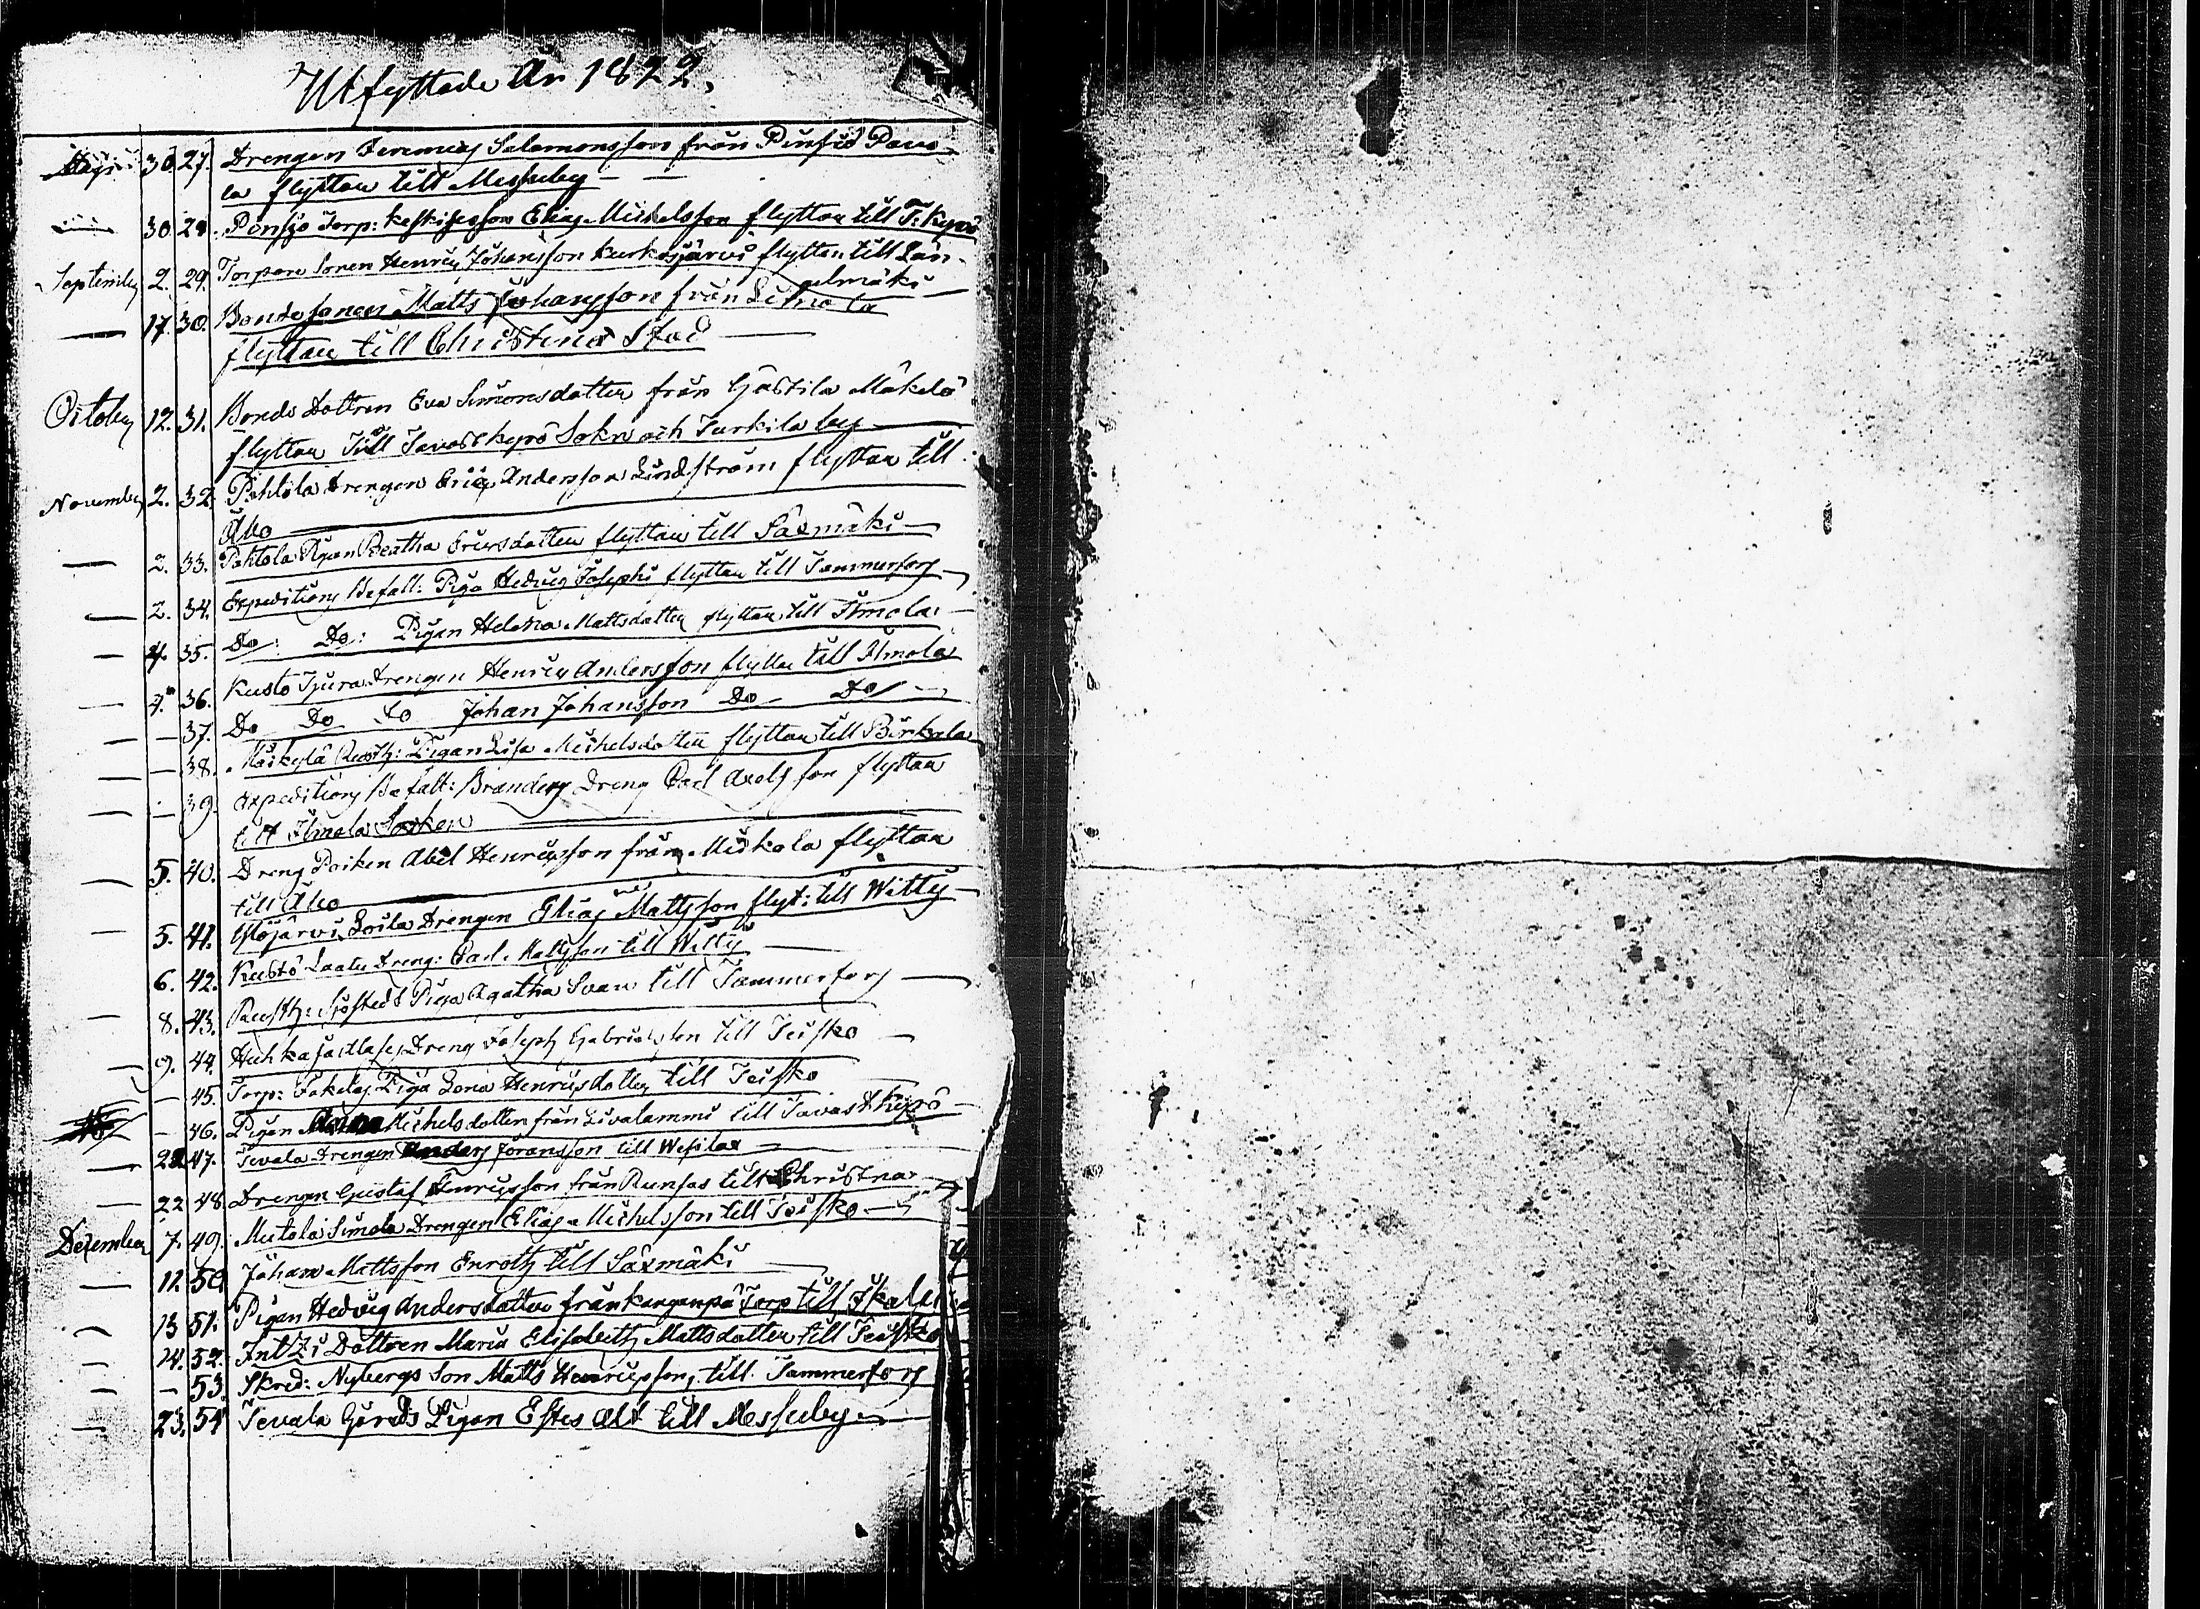 Utfyttade År 1822.
30. 27. Drengen Jeremias Salomonsson från Pinsiö Pavo-
la flyttar till Messuby —
— 30. 28. Pinsiö Torp: Flias Michelsson flyttar till T: Kyrö
September 2. 29. Torpare Sonen Henric Johansson Kurkisjärvi flyttar till Län-
gelmäki —
— 17. 30. Bonde sonen Matts Johansson från Simola
flyttar till Christinæ Stad —
October 12. 31. Bonde Dottren Eva Simonsdotter från Gästila Mäkelä
flyttar Till Tavast kyrö Sokn och Turkila by —
November 2. 32. Pohtola Drengen Eric Andersson Lindström flyttar till
Åbo —
— 2. 33. Pohtola Pigan Beatha Ericsdotter flyttar till Säxmäki —
— 2. 34. Expeditions Befall: Piga Hedvig Josephi flyttar till Tammerfors —
— 4. 35. Do: Do: Pigan Helena Mattsdotter flyttar till Ilmola —
— 4. 36. Kusto Drengen Henric Andersson flytta till Ilmola
— — 37. Do Do Do Johan Johansson Do — Do —
— — 38. Mäkylä Rusth: Pigan Lisa Michelsdotter flyttar till Birkala
— — 39. Expeditions Befalt: Branders Dreng Carl Axelsson flyttar
till Ilmola Socken —
— 5. 40. Dreng Poiken Abel Henricsson från Miskola flyttar
till Åbo —
— 5. 41. Ylöjärvi Soila Drengen Elias Mattsson flyt: till Wittis —
6. 42. Kustö Laatu Dreng: Carl Mattsson till Wittis —
— 8. 43. Rusth: Sjöstedt Piga Agatha Svan till Tammerfors —
— 9. 44. Dreng Joseph Gabrielsson till Teisko —
— — 45. Torp: Piga Lena Henricsdotter till Teisko
— 46. Pigan Anna Michelsdotter från Livalammi till Tavastkyrö —
— 22 47. Tevala Drengen Anders Göransson till Wesilax —
— 22 48 Drengen Gustaf Henricsson från Runsas till Christina
Dezember 7. 49. Mutala Simola Drengen Elias Michelsson till Teisko —
— 12 50. Johan Mattsson Enroth till Säxmäki —
— 13 51. Pigan Hedvig Andersdotter från Kangenpä Torp till Ikalis
— 14. 52. Dottren Maria Elisabeth Mattsdotter till Teisko
— — 53. Skred: Nybergs Son Matts Henricsson, till Tammerfors
— 23. 54 Tevala Gårds Pigan Estes Alt till Messuby —